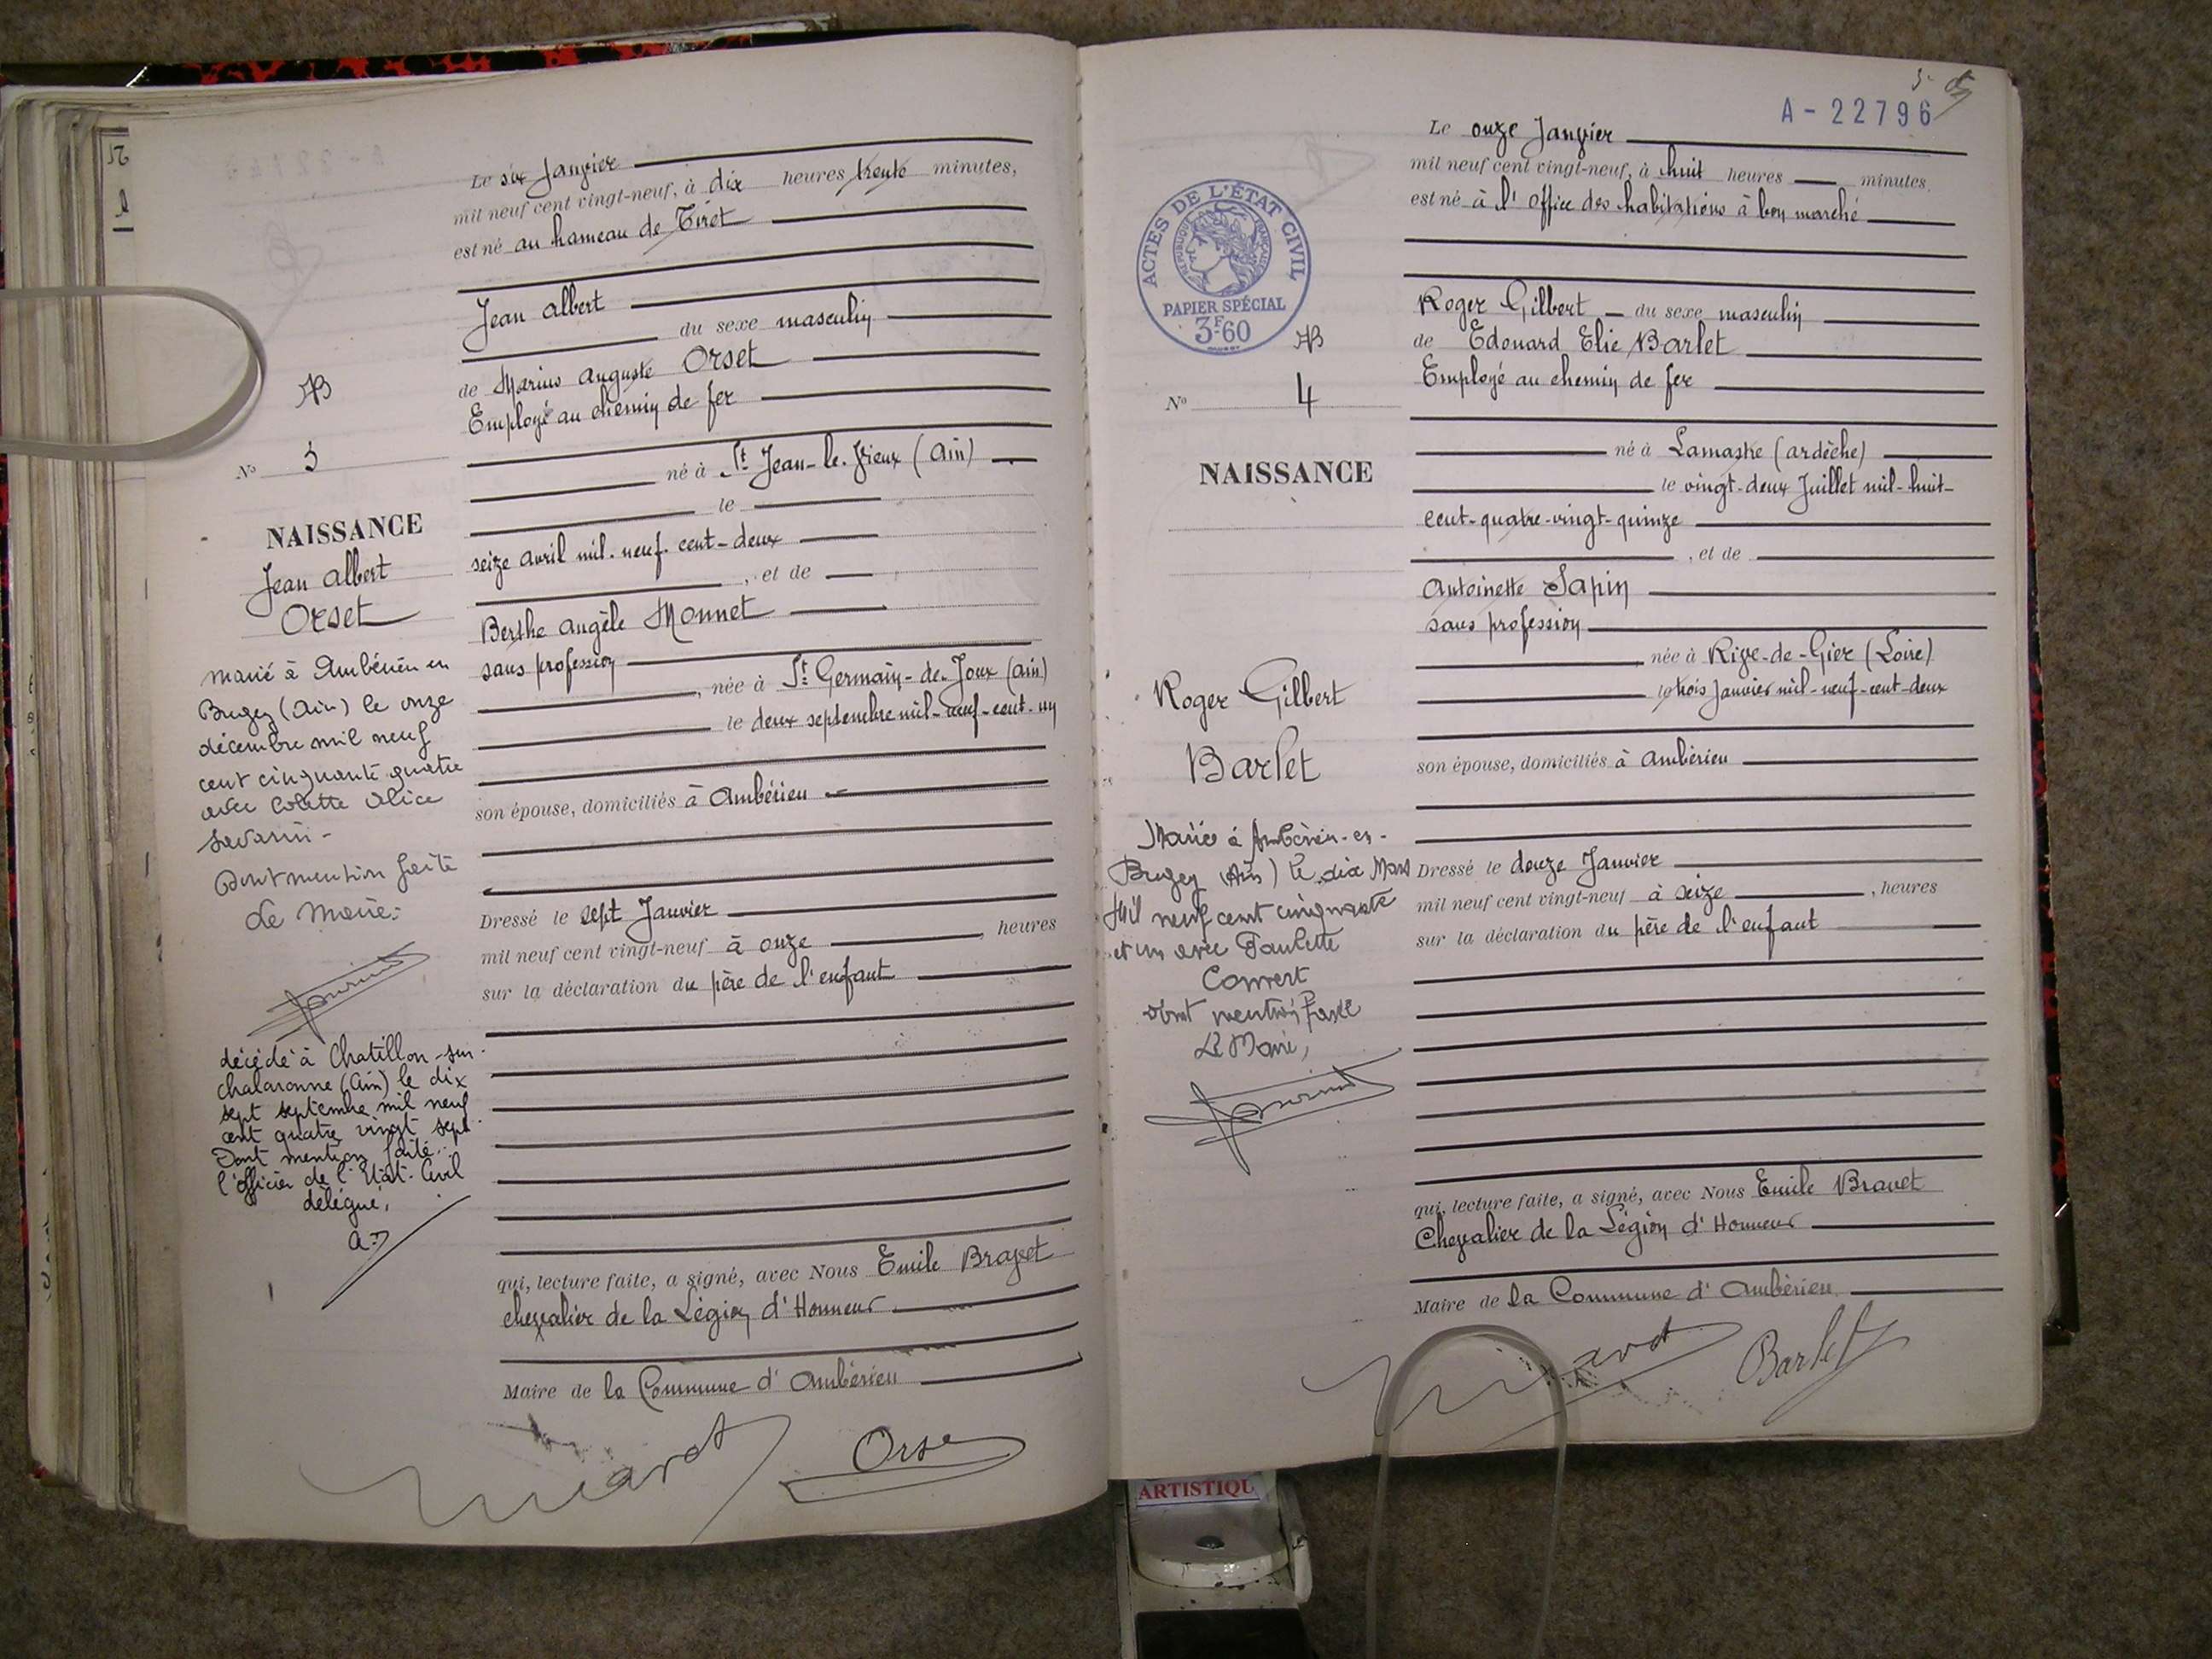 Le six Janvier
mil neuf cent vingt-neuf, à dix heures trente minutes,
est né au hameau de Tiret
Jean Albert
du sexe masculin
de Marius Auguste Orset
Employé au chemin de fer
né à St Jean-le-Vieux (Ain)
le
seize avril mil-neuf-cent-deux
, et de
Berthe Angèle Monnet
sans profession
, née à St Germain-de-Joux (Ain)
le deux septembre mil-neuf-cent-un
son épouse, domiciliés à Ambérieu
Dressé le sept Janvier
mil neuf cent vingt-neuf à onze , heures
sur la déclaration du père de l'enfant
qui, lecture faite, a signé, avec Nous Emile Bravet
chevalier de la Légion d'Honneur
Maire de la Commune d'Ambérieu
Orset
No 3
NAISSANCE
Jean Albert
Orset
Marié à Ambérieu en
Bugey (Ain) le onze
décembre mil neuf
cent cinquante quatre
avec Colette Alice
Savarin-
Dont mention faite
Le Maire:
décédé à Chatillon-sur-
chalaronne (Ain) le dix
sept septembre mil neuf
cent quatre vingt sept
Dont mention faite.
l'officier de l'Etat-Civil
délégué,
A-22796
5
Le onze Janvier
mil neuf cent vingt-neuf, à huit heures minutes
est né à l'Office des habitations à bon marché
Roger Gilbert du sexe masculin
de Edouard Elie Barlet
Employé au chemin de fer
né à Lamastre (Ardèche)
le vingt-deux Juillet mil-huit-
cent-quatre-vingt-quinze
, et de
Antoinette Sapin
sans profession
, née à Rive-de-Gier (Loire)
le trois Janvier mil-neuf-cent-deux
son épouse, domiciliés à Ambérieu
Dressé le douze Janvier
mil neuf cent vingt-neuf à seize , heures
sur la déclaration du père de l'enfant
qui, lecture faite, a signé, avec Nous Emile Bravet
Chevalier de la Légion d'Honneur
Maire de la Commune d'Ambérieu
Barlet
ACTES DE L'ÉTAT CIVIL
RÉPUBLIQUE FRANÇAISE
PAPIER SPÉCIAL
3F60
No 4
NAISSANCE
Roger Gilbert
Barlet
Marié à Ambérieu-en-
Bugey (Ain) le dix Mars
Mil neuf cent cinquante
et un avec Paulette
Convert
dont mention faite
Le Maire,
ARTISTIQU